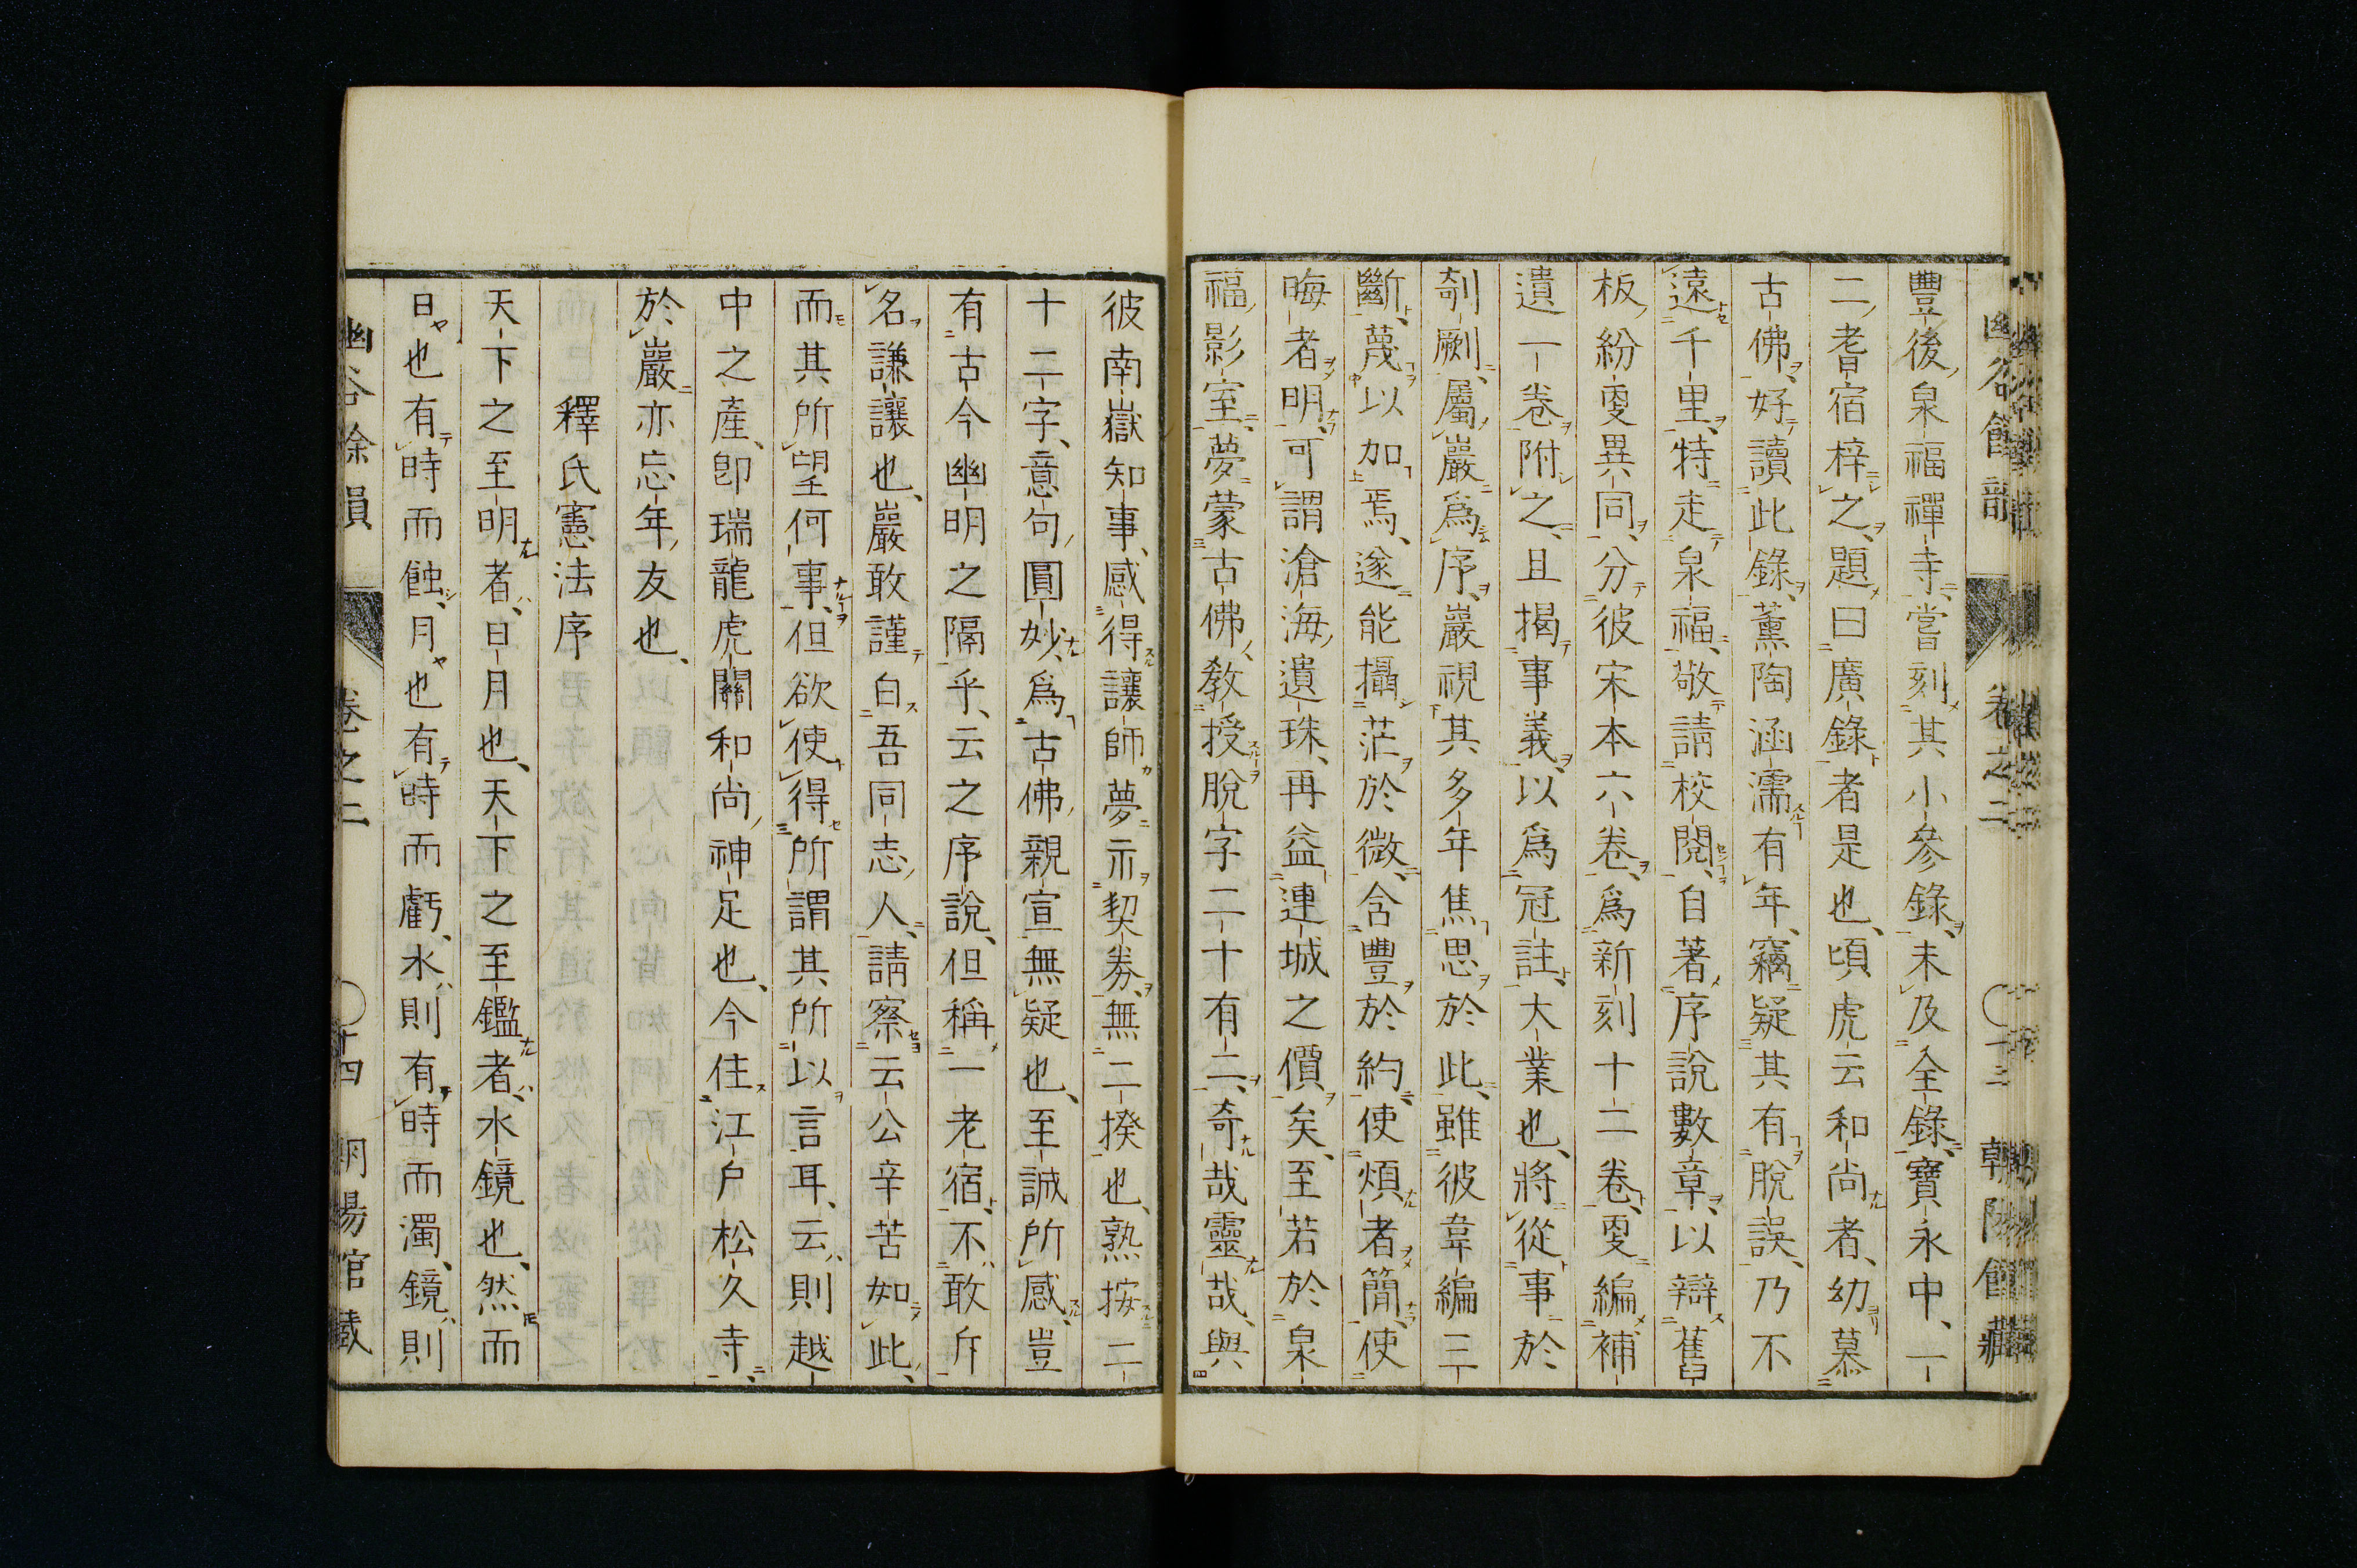 豐後泉福禪寺嘗刻其小參錄未及全錄寶永中一
二耆宿梓之題曰廣錄者是也頃虎云和尚者幼慕
古佛好讀此錄薰陶涵濡有年竊疑其有脫誤乃不
遠千里特走泉福敬請校閱自著序說數章以辯舊
板紛更異同分彼宋本六卷爲新刻十二卷更編補
遺一卷附之且揭事義以爲冠註大業也將從事於
剞劂屬巖爲序巖視其多年焦思於此雖彼韋編三
斷蔑以加焉遂能攝茫於微含豐於約使煩者簡使
晦者明可謂滄海遺珠再益連城之價矣至若於泉
福影室夢蒙古佛敎授脫字二十有二奇哉靈哉與
彼南嶽知事感得讓師夢示契券無二揆也熟按二
十二字意句圓妙爲古佛親宣無疑也至誠所感豈
有古今幽明之隔乎云之序說但稱一老宿不敢斥
名謙讓也巖敢謹白吾同志人請察云公辛苦如此
而其所望何事但欲使得所謂其所以言耳云則越
中之產卽瑞龍虎關和尚神足也今住江戶松久寺
於巖亦忘年友也
釋氏憲法序
天下之至明者日月也天下之至鑑者水鏡也然而
日也有時而蝕月也有時而虧水則有時而濁鏡則
幽谷餘韻 卷之二 〇十四 朝陽館藏